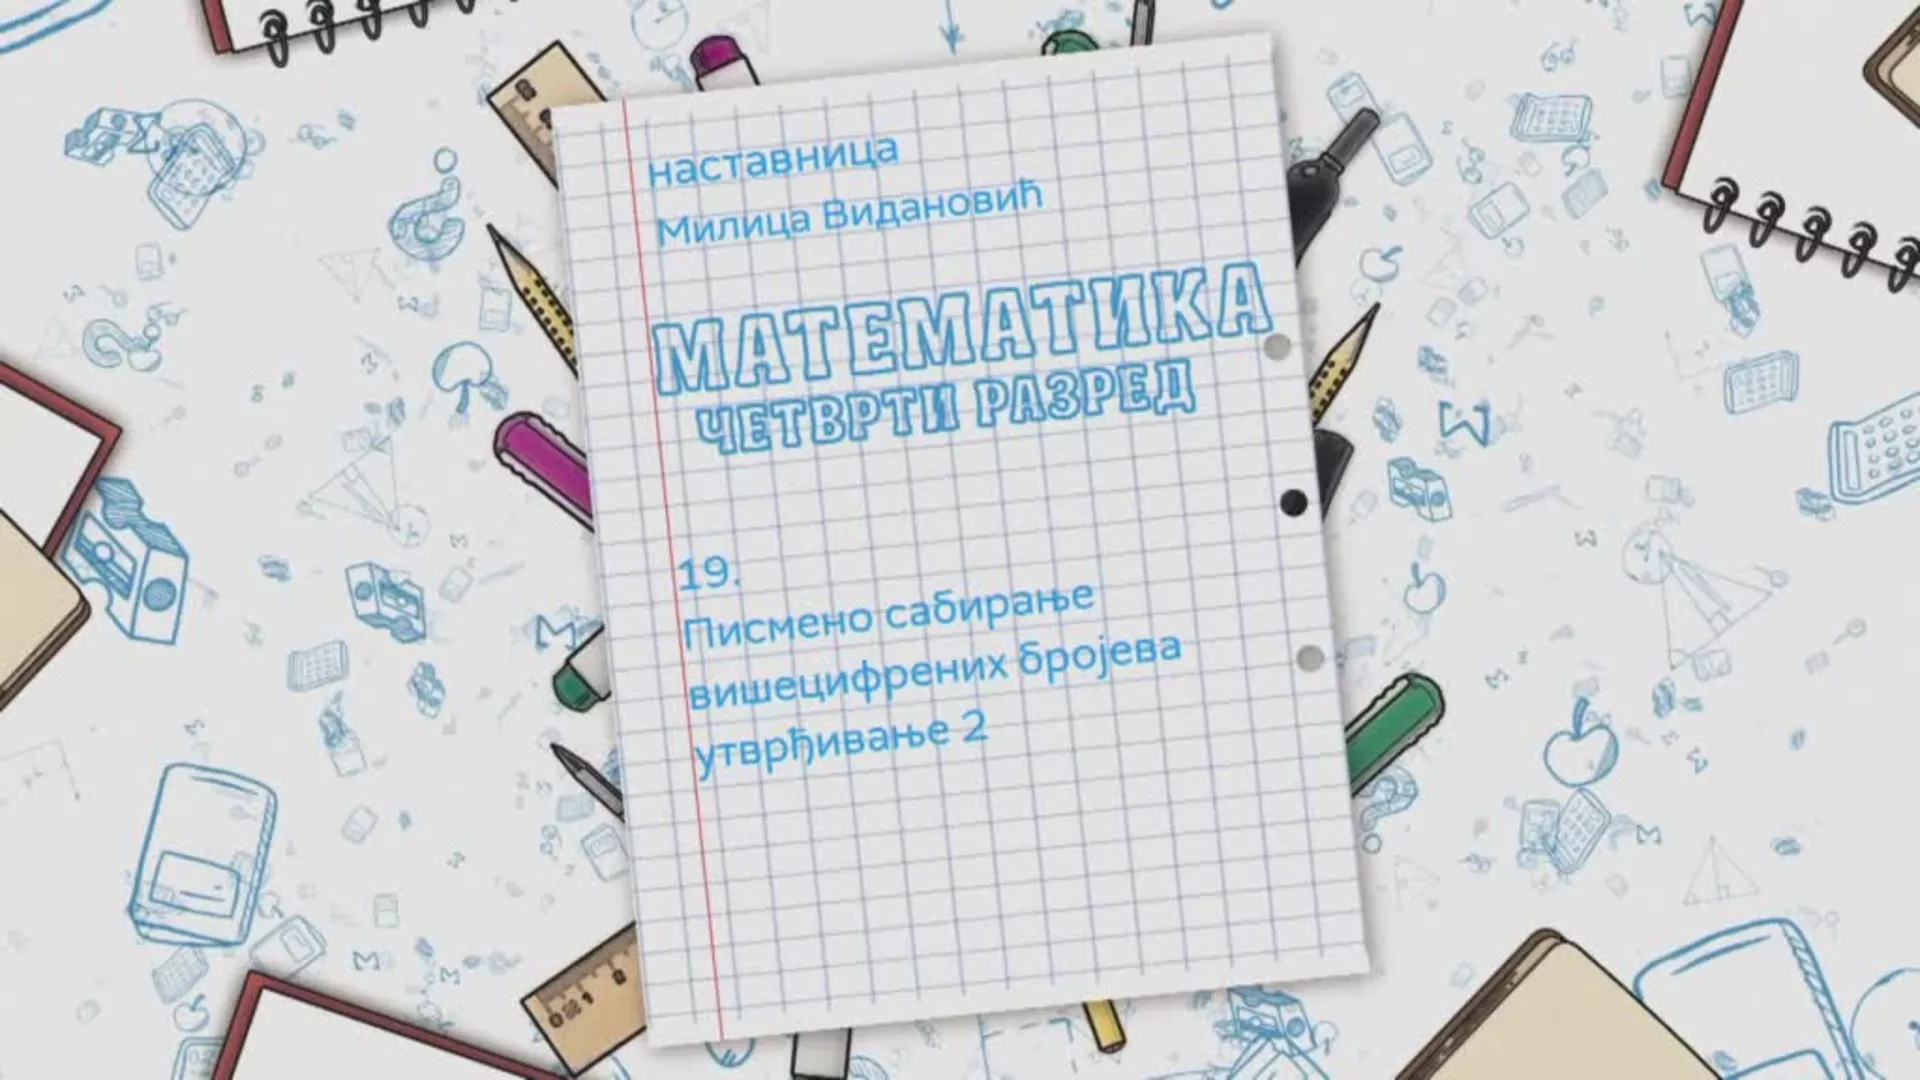 наставница
Милица Видановић
МАТЕМАТИКА
ЧЕТВРТИ РАЗРЕД
19.
Писмено сабирање
вишецифрених бројева
утврђивање 2